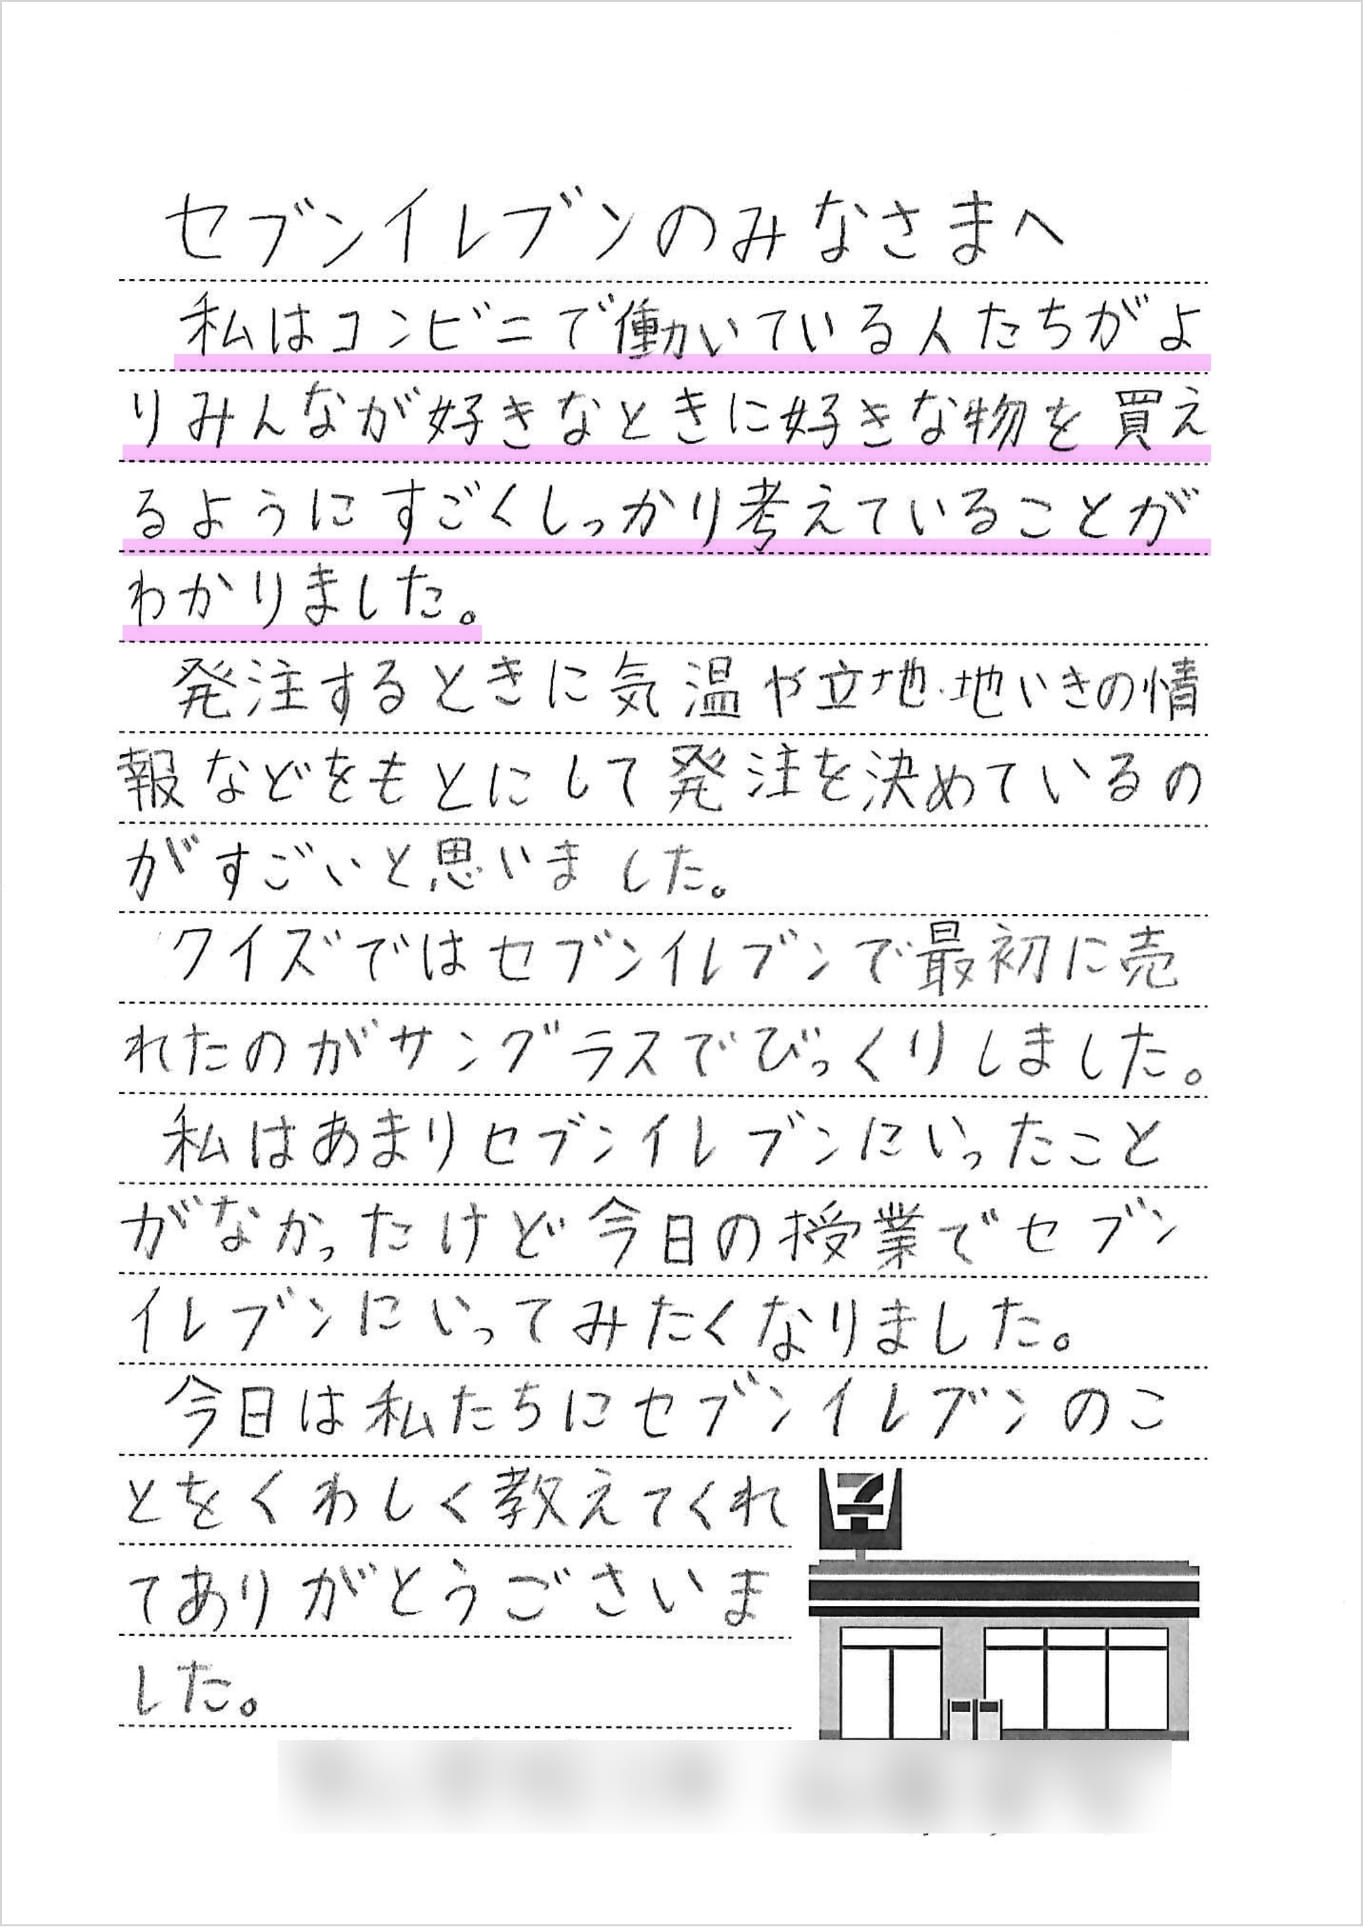 セブンイレブンのみなさまへ
私はコンビニで働いている人たちがよ
りみんなが好きなときに好きな物を買え
るようにすごくしっかり考えていることが
わかりました。
発注するときに気温や立地・地いきの情
報などをもとにして発注を決めているの
がすごいと思いました。
クイズではセブンイレブンで最初に売
れたのがサングラスでびっくりしました。
私はあまりセブンイレブンにいったこと
がなかったけど今日の授業でセブン
イレブンにいってみたくなりました。
今日は私たちにセブンイレブンのこ
とをくわしく教えてくれ
てありがとうごさいま
した。